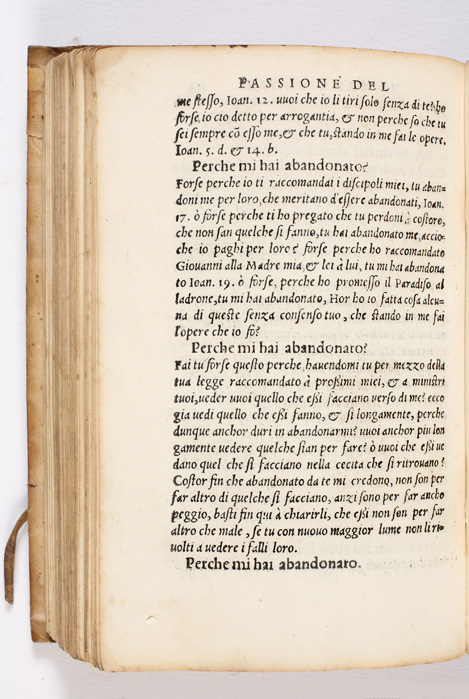 PASSIONE DEL
me stesso, Ioan. 12. vuoi che io li tiri solo senza di te? ho
forse, io cio detto per arrogantia, & non perche so che tu
sei sempre cō esso me, & che tu, stando in me fai le opere,
Ioan. 5. d. & 14. b.
Perche mi hai abandonato?
Forse perche io ti raccomandai i discipoli miei, tu aban-
doni me per loro, che meritano d'essere abandonati, Ioan.
17. ò forse perche ti ho pregato che tu perdoni à costoro,
che non san quelche si fanno, tu hai abandonato me, accio-
che io paghi per loro? forse perche ho raccomandato
Giouanni alla Madre mia, & lei à lui, tu mi hai abandona
to Ioan. 19. ò forse, perche ho promesso il Paradiso al
ladrone, tu mi hai abandonato, Hor ho io fatta cosa alcu-
na di queste senza consenso tuo, che stando in me fai
l'opere che io fo?
Perche mi hai abandonato?
Fai tu forse questo perche, hauendomi tu per mezzo della
tua legge raccomandato à prossimi miei, & a ministri
tuoi, veder vuoi quello che essi facciano verso di me? ecco
gia vedi quello che essi fanno, & si longamente, perche
dunque anchor duri in abandonarmi? vuoi anchor piu lon
gamente vedere quelche sian per fare? ò vuoi che essi ve
dano quel che si facciano nella cecita che si ritrouano?
Costor fin che abandonato da te mi credono, non son per
far altro di quelche si facciano, anzi sono per far anche
peggio, basti fin quì à chiarirli, che essi non son per far
altro che male, se tu con nuouo maggior lume non li ri-
uolti a vedere i falli loro.
Perche mi hai abandonato.